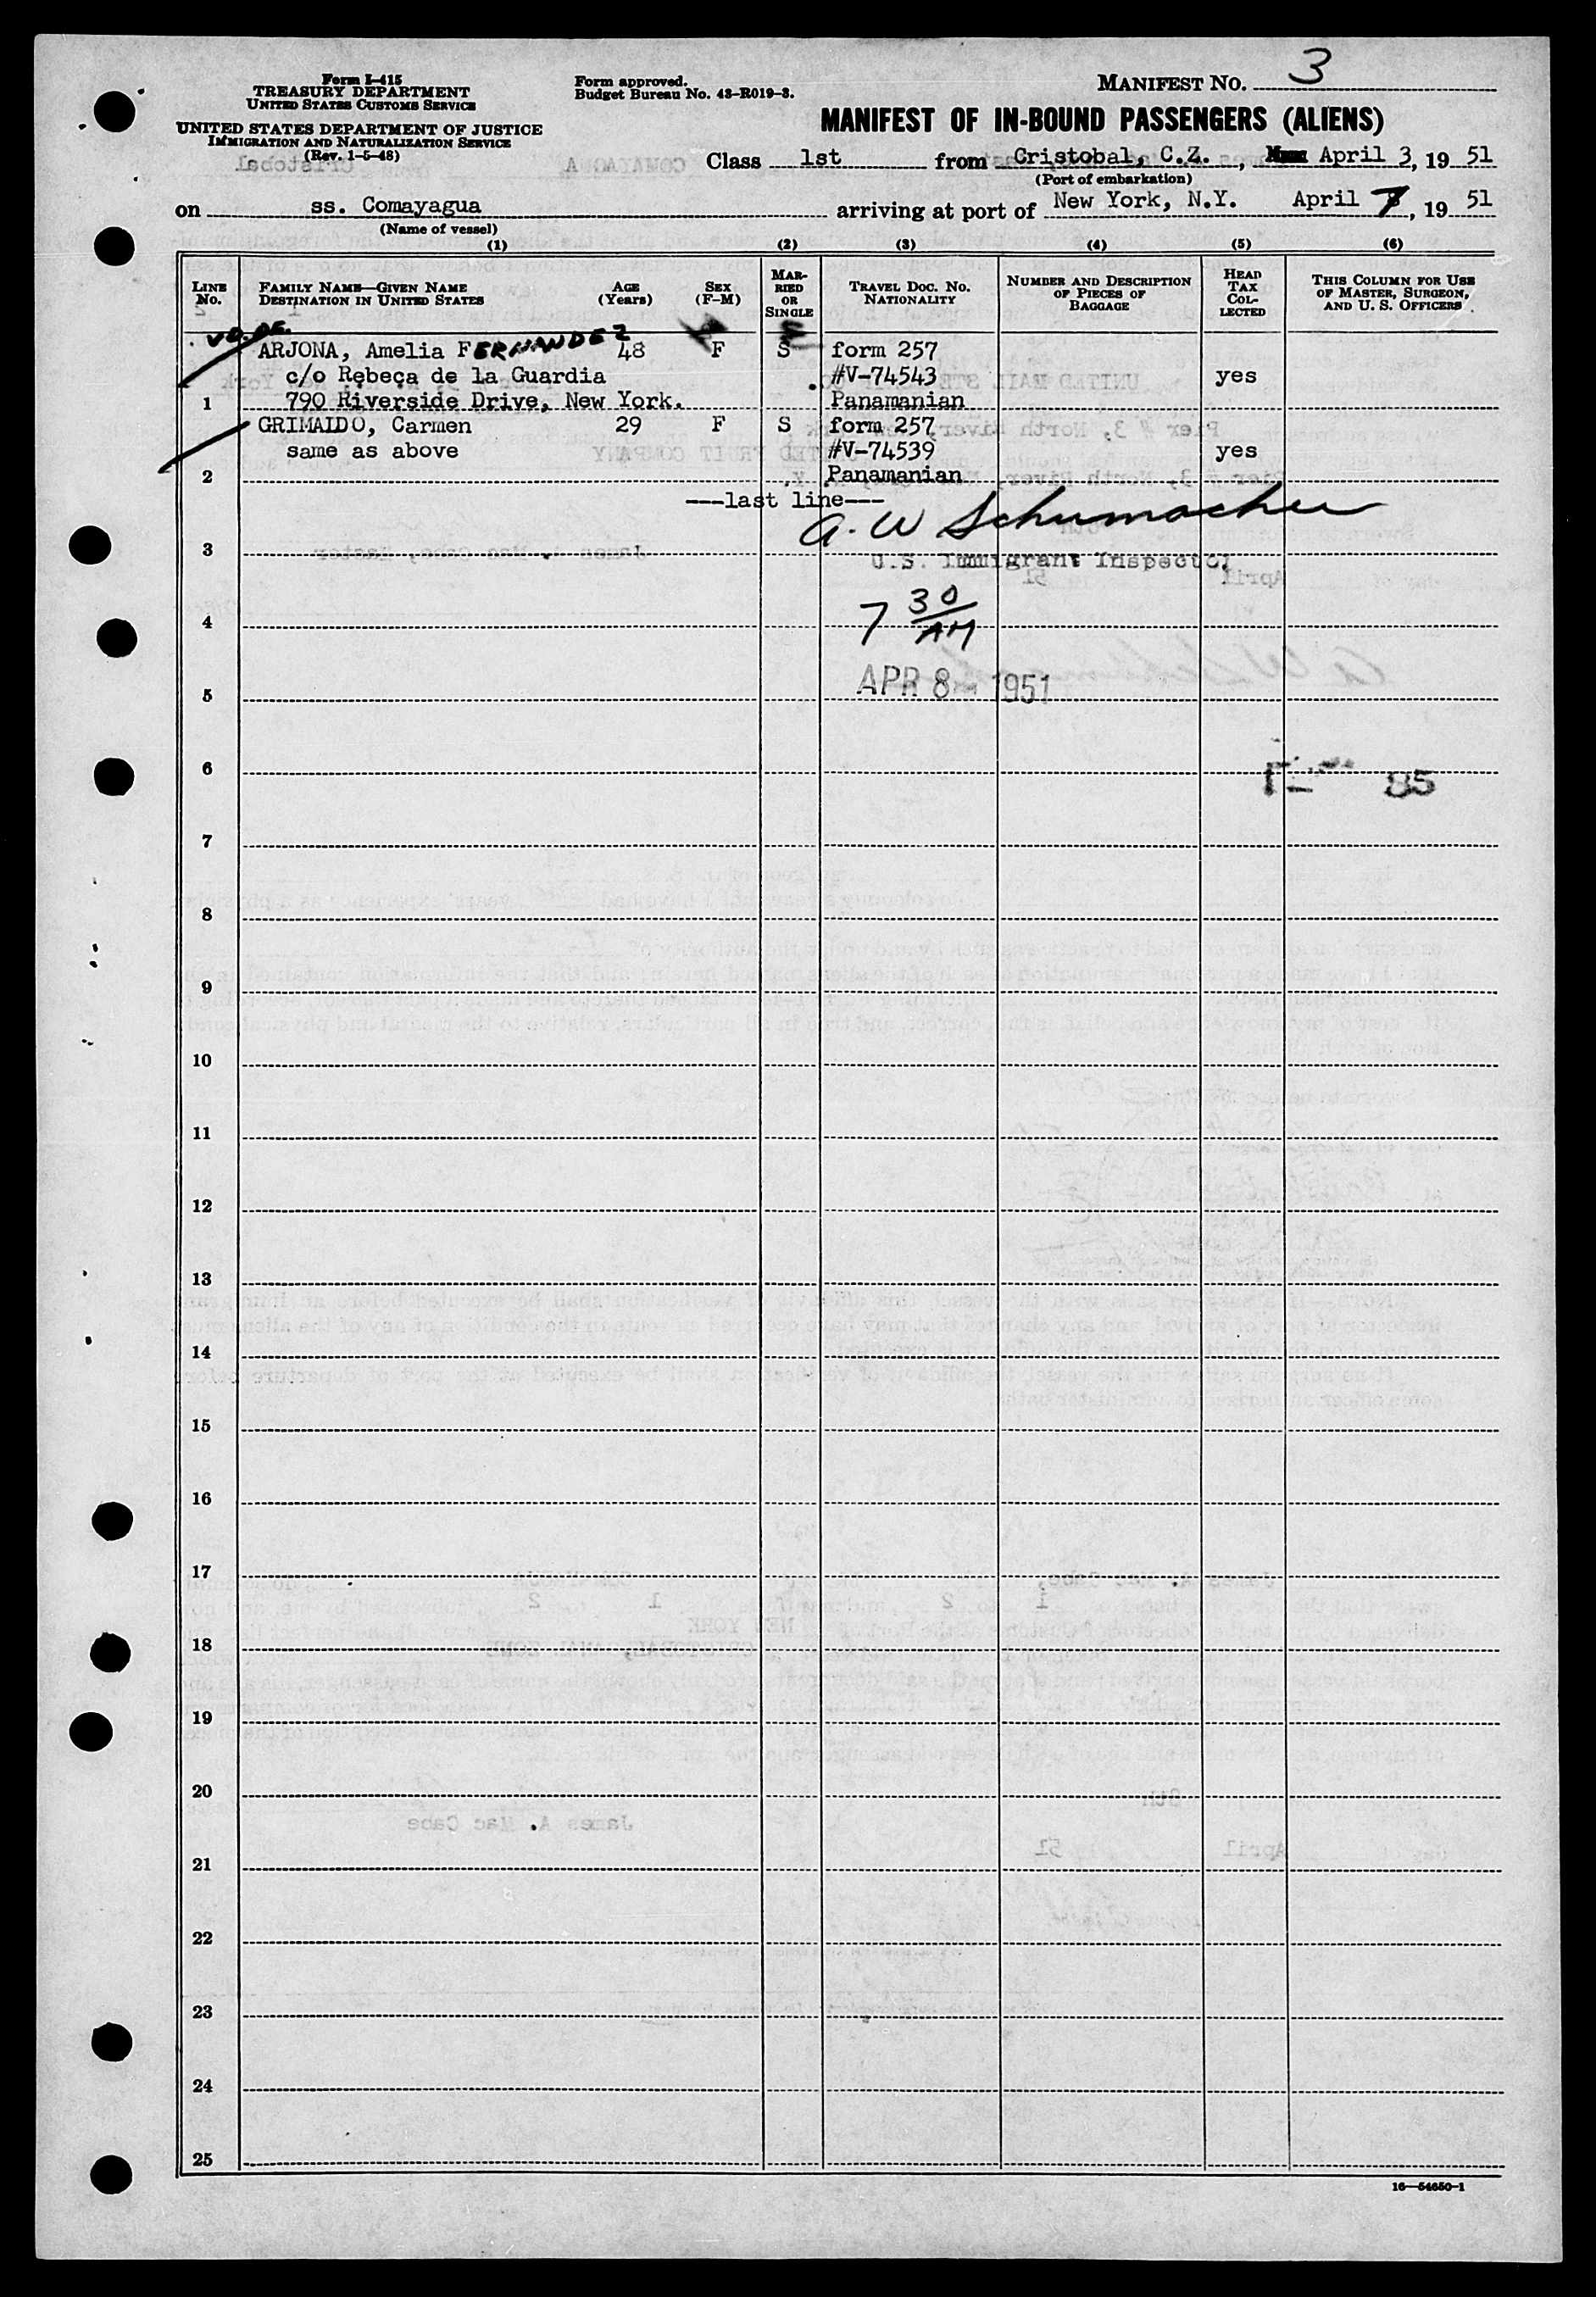 Form I-415
TREASURY DEPARTMENT
UNITED STATES CUSTOMS SERVICE
UNITED STATES DEPARTMENT OF JUSTICE
IMMIGRATION AND NATURALIZATION SERVICE
(Rev. 1-5-48)
Form approved.
Budget Bureau No. 43-R019-3.
MANIFEST NO. 3
MANIFEST OF IN-BOUND PASSENGERS (ALIENS)
Class 1st from Cristobal, C.Z., April 3, 19 51
(Port of embarkation)
on ss. Comayagua arriving at port of New York, N.Y. April 7, 19 51
(Name of vessel)
(1) (2) (3) (4) (5) (6)
LINE No. FAMILY NAME—GIVEN NAME DESTINATION IN UNITED STATES AGE (Years) SEX (F-M) MARRIED OR SINGLE TRAVEL DOC. NO. NATIONALITY NUMBER AND DESCRIPTION OF PIECES OF BAGGAGE HEAD TAX COLLECTED THIS COLUMN FOR USE OF MASTER, SURGEON, AND U. S. OFFICERS
VD. DE.
ARJONA, Amelia FERNANDEZ 48 F S form 257
c/o Rebeca de la Guardia #V-74543 yes
1 790 Riverside Drive, New York. Panamanian
GRIMALDO, Carmen 29 F S form 257
same as above #V-74539 yes
2 Panamanian
---last line---
A. W Schumacher
3
U.S. Immigrant Inspector
7 30/AM
4
APR 8 1951
5
6
85
7
8
9
10
11
12
13
14
15
16
17
18
19
20
21
22
23
24
25
16—54650-1